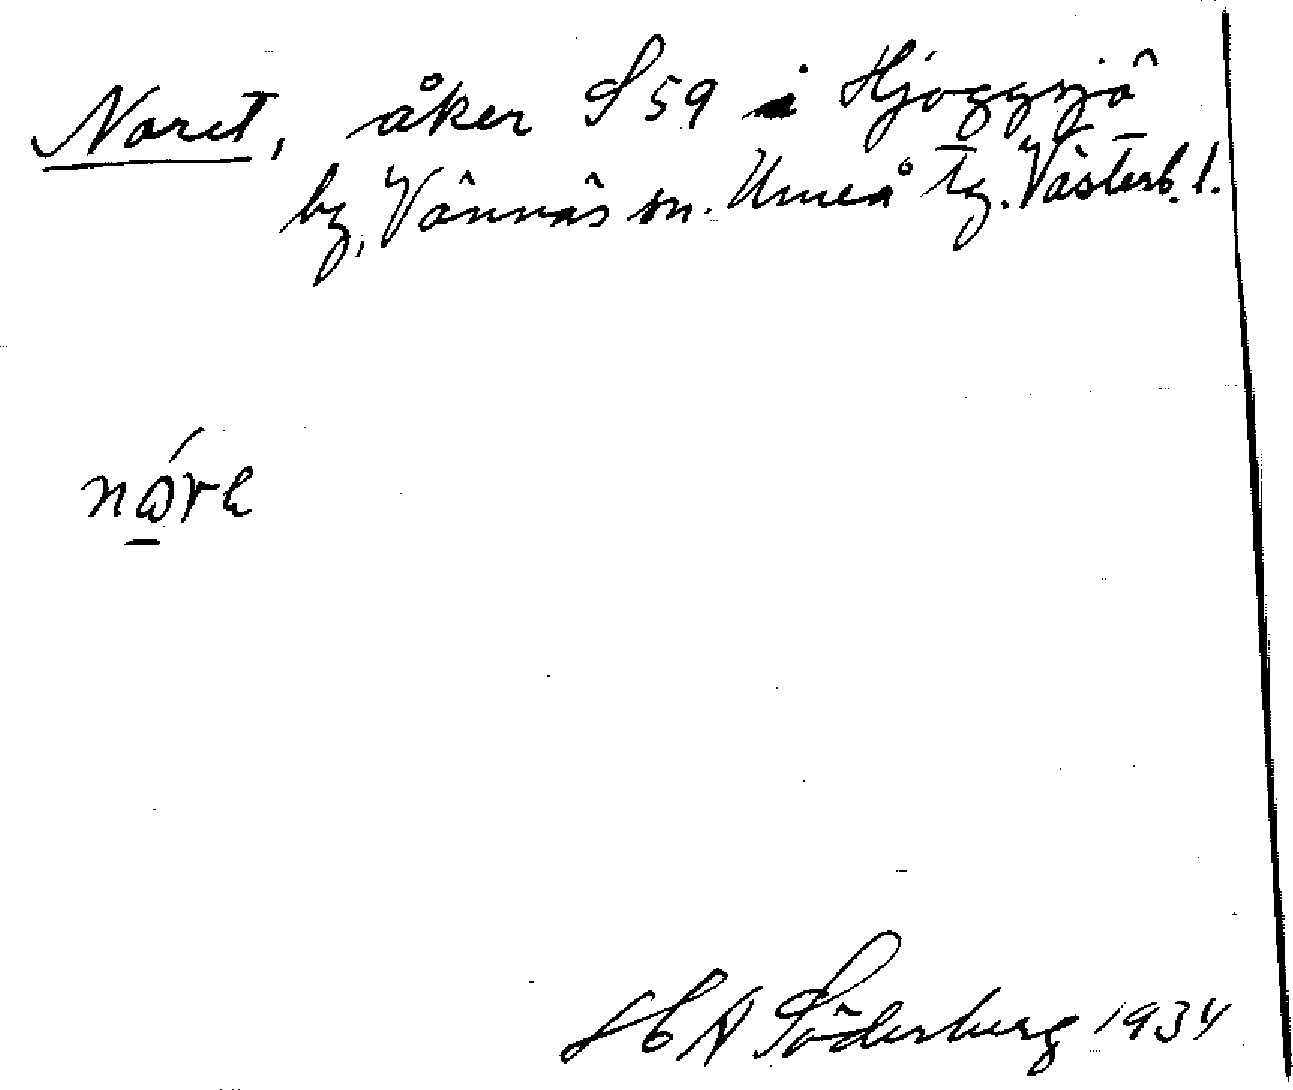 Noret, åker S 59 i Hjoggsjö
by, Vännäs sn. Umeå tg. Västerb. l.
nǿre
H A Söderberg 1934